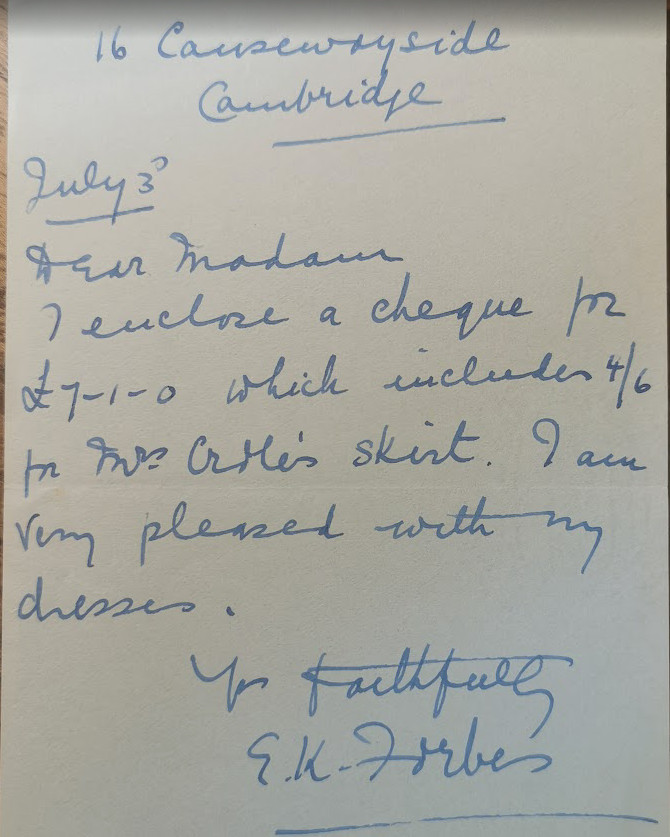 16 Causewayside
Cambridge
July 3º
Dear Madam
I enclose a cheque for
£7-1-0 which includes 4/6
for Mrs skirt. I am
very pleased with my
dresses.
Yrs faithfully
E.K. Forbes